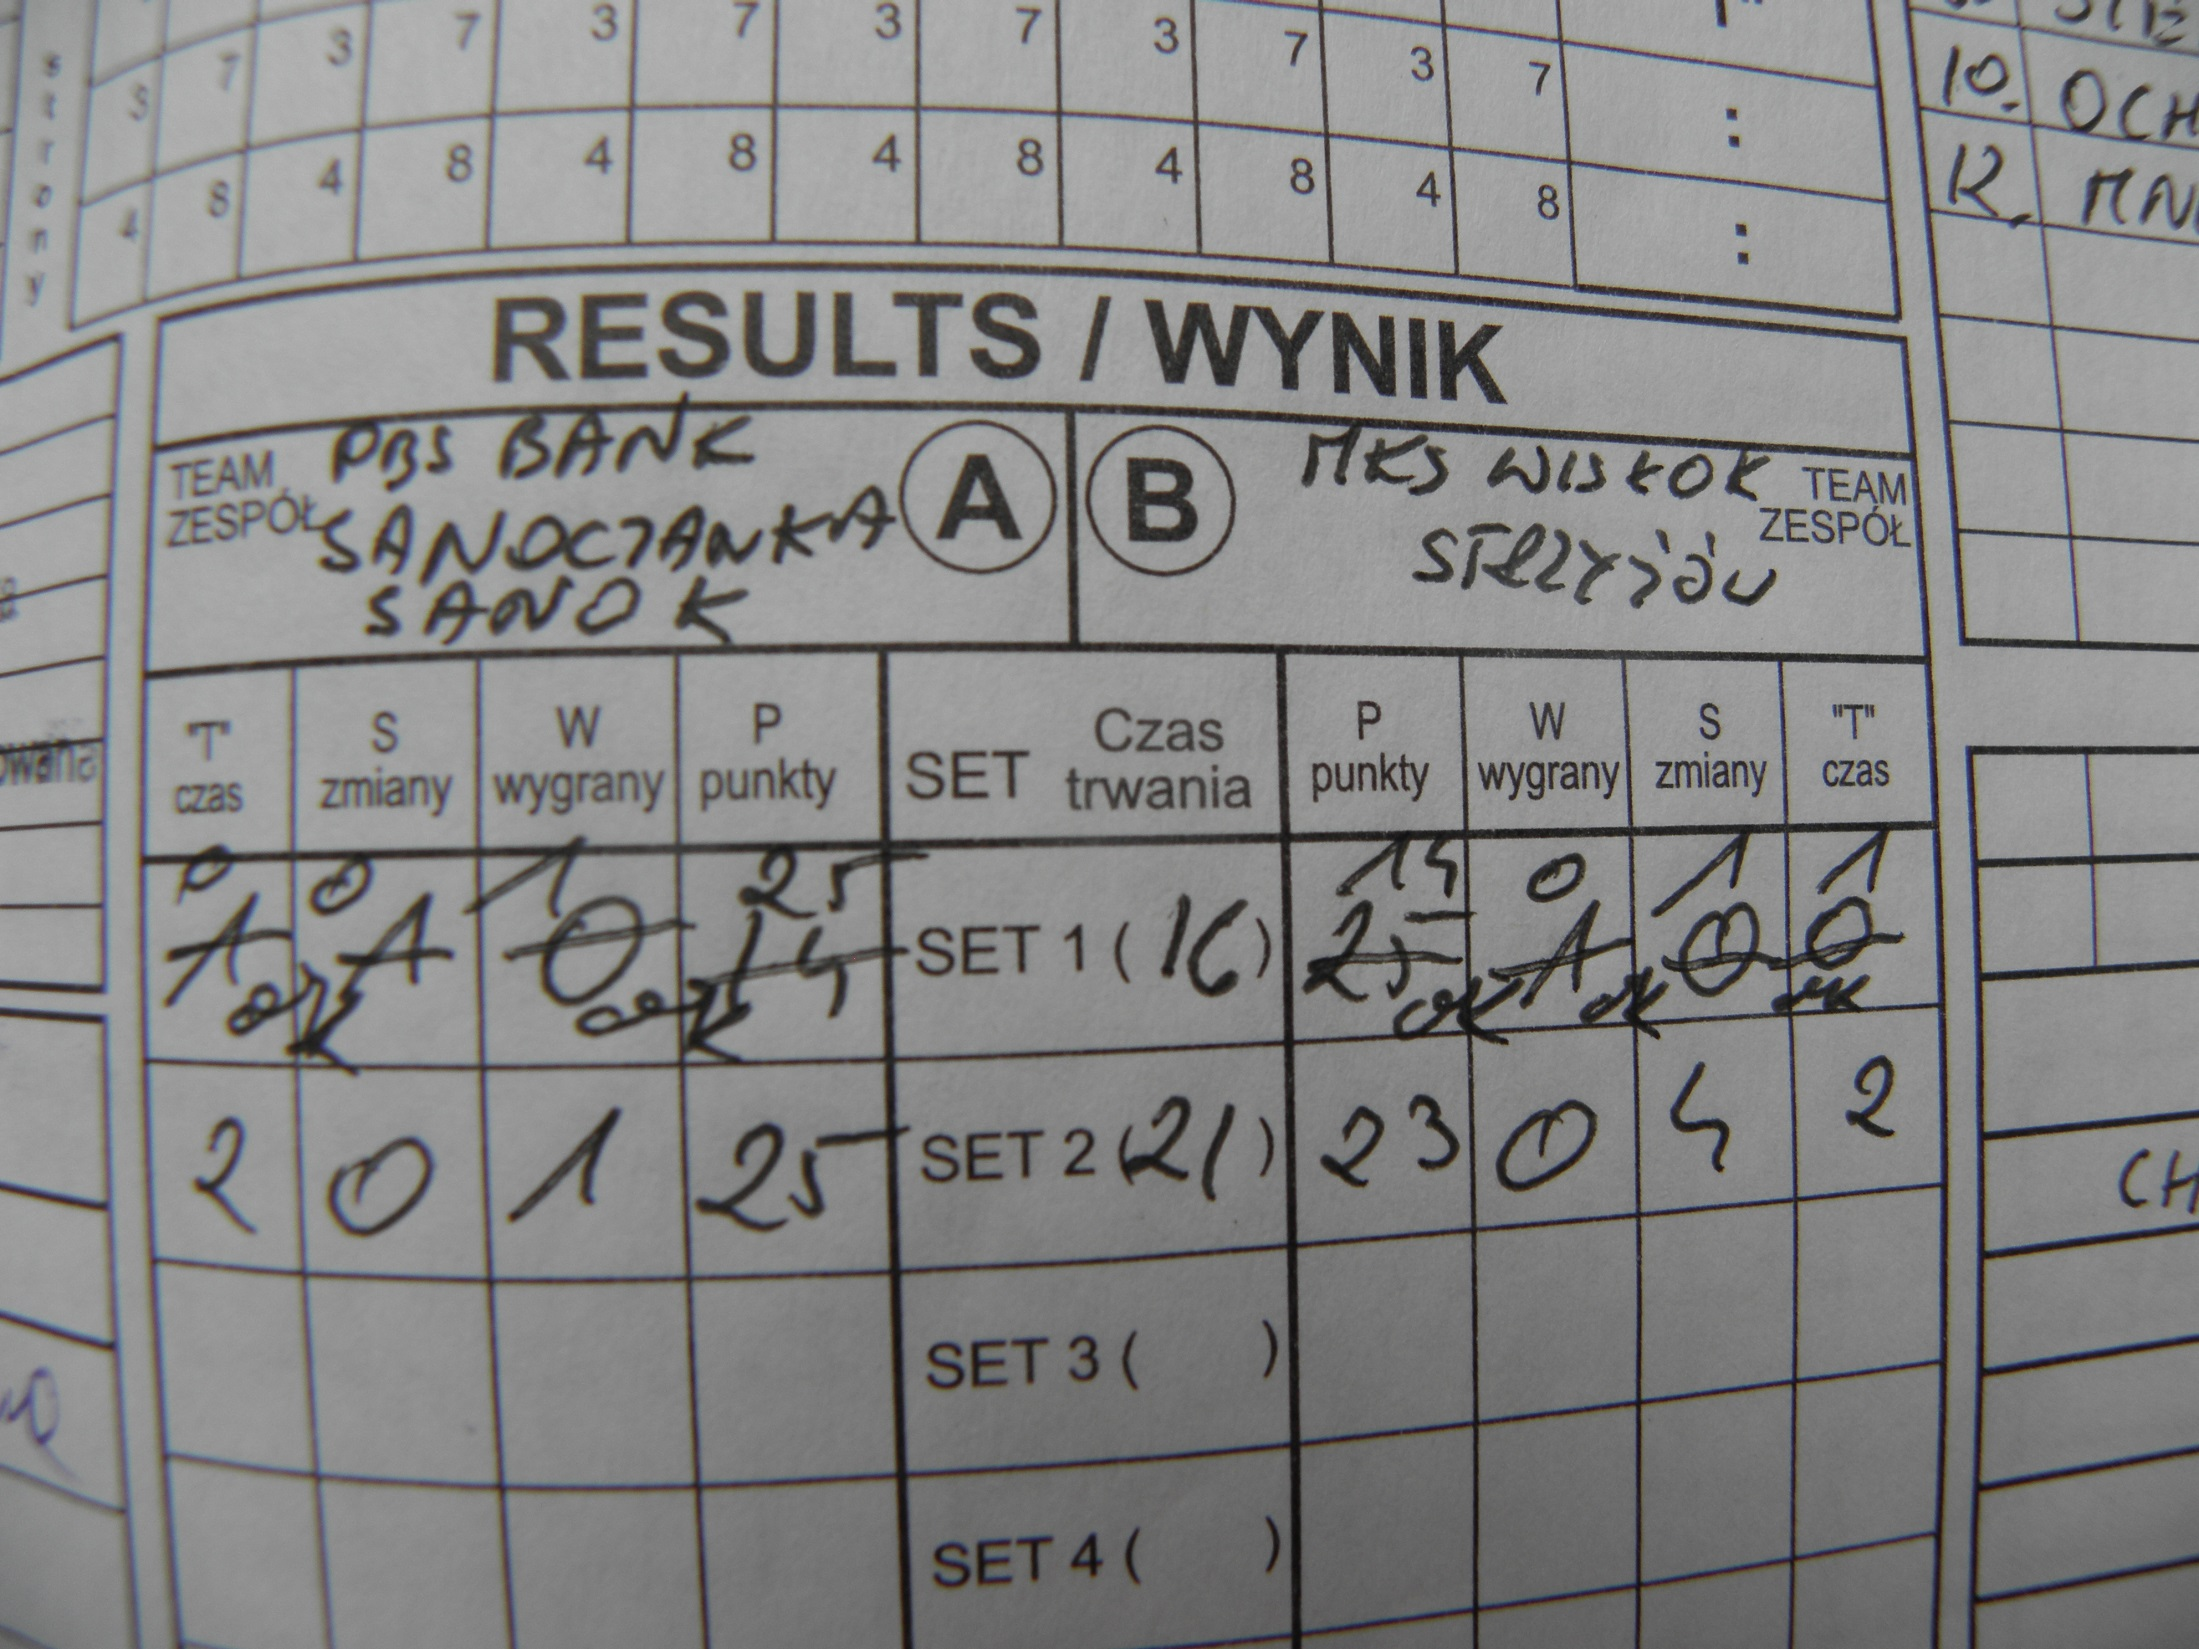 3 7 3 7 3 7 3 7 3 7 3 7 :
4 8 4 8 4 8 4 8 4 8 4 8 :
10. OCH
12. MN
RESULTS / WYNIK
TEAM ZESPÓŁ PBS BANK SANOCZANKA SANOK A B MKS WISŁOK STRZYŻÓW TEAM ZESPÓŁ
"T" czas S zmiany W wygrany P punkty SET Czas trwania P punkty W wygrany S zmiany "T" czas
0 0 1 25 14 0 1 1
1 1 0 14 SET 1 (16) 25 1 0 0
ok ok ok ok ok
2 0 1 25 SET 2 (21) 23 0 4 2
SET 3 ( )
SET 4 ( )
CH